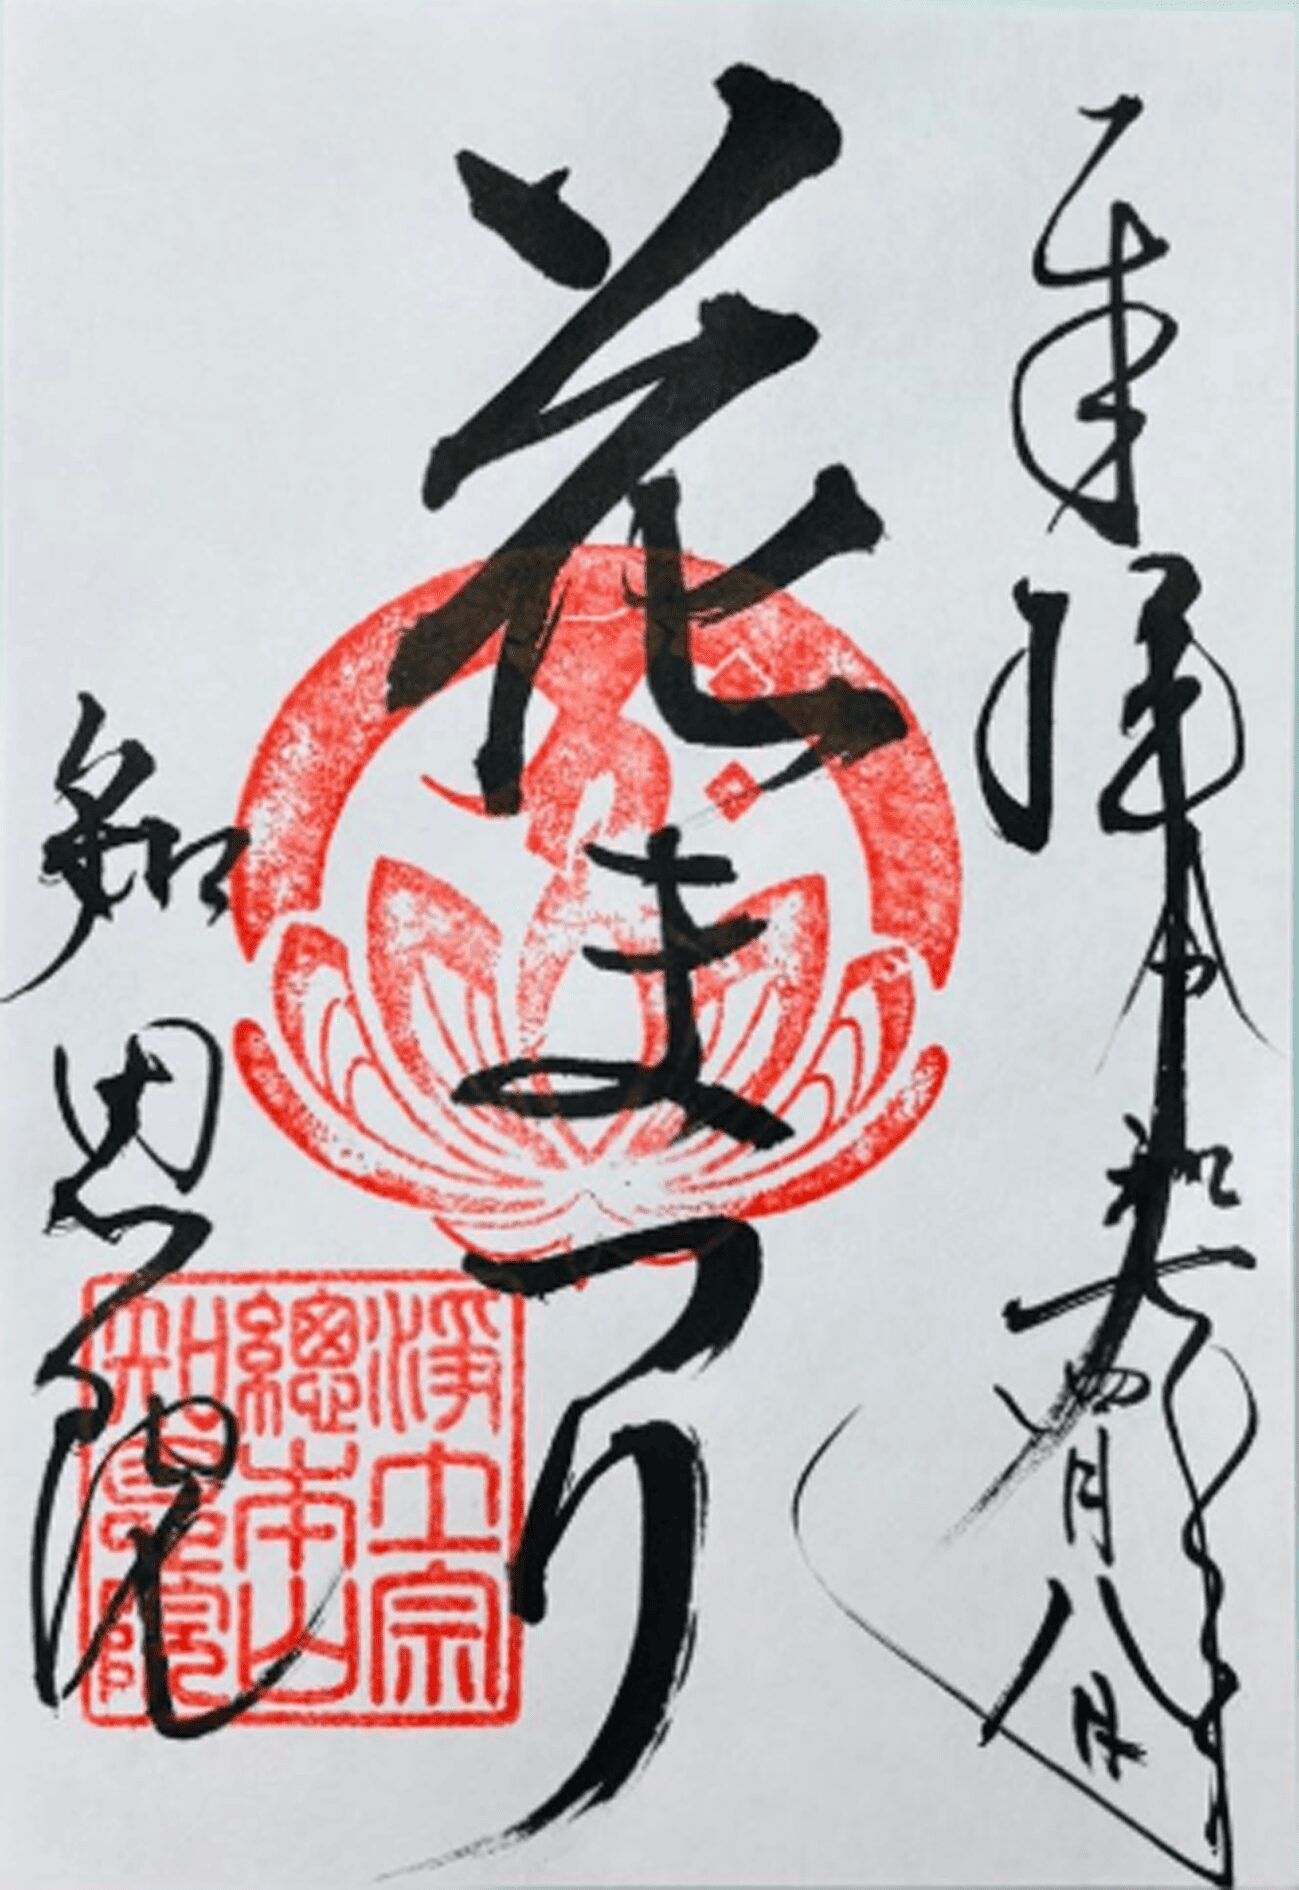 奉拝 令和年四月八日
花まつり
知恩院
淨土宗
總本山
知恩院印